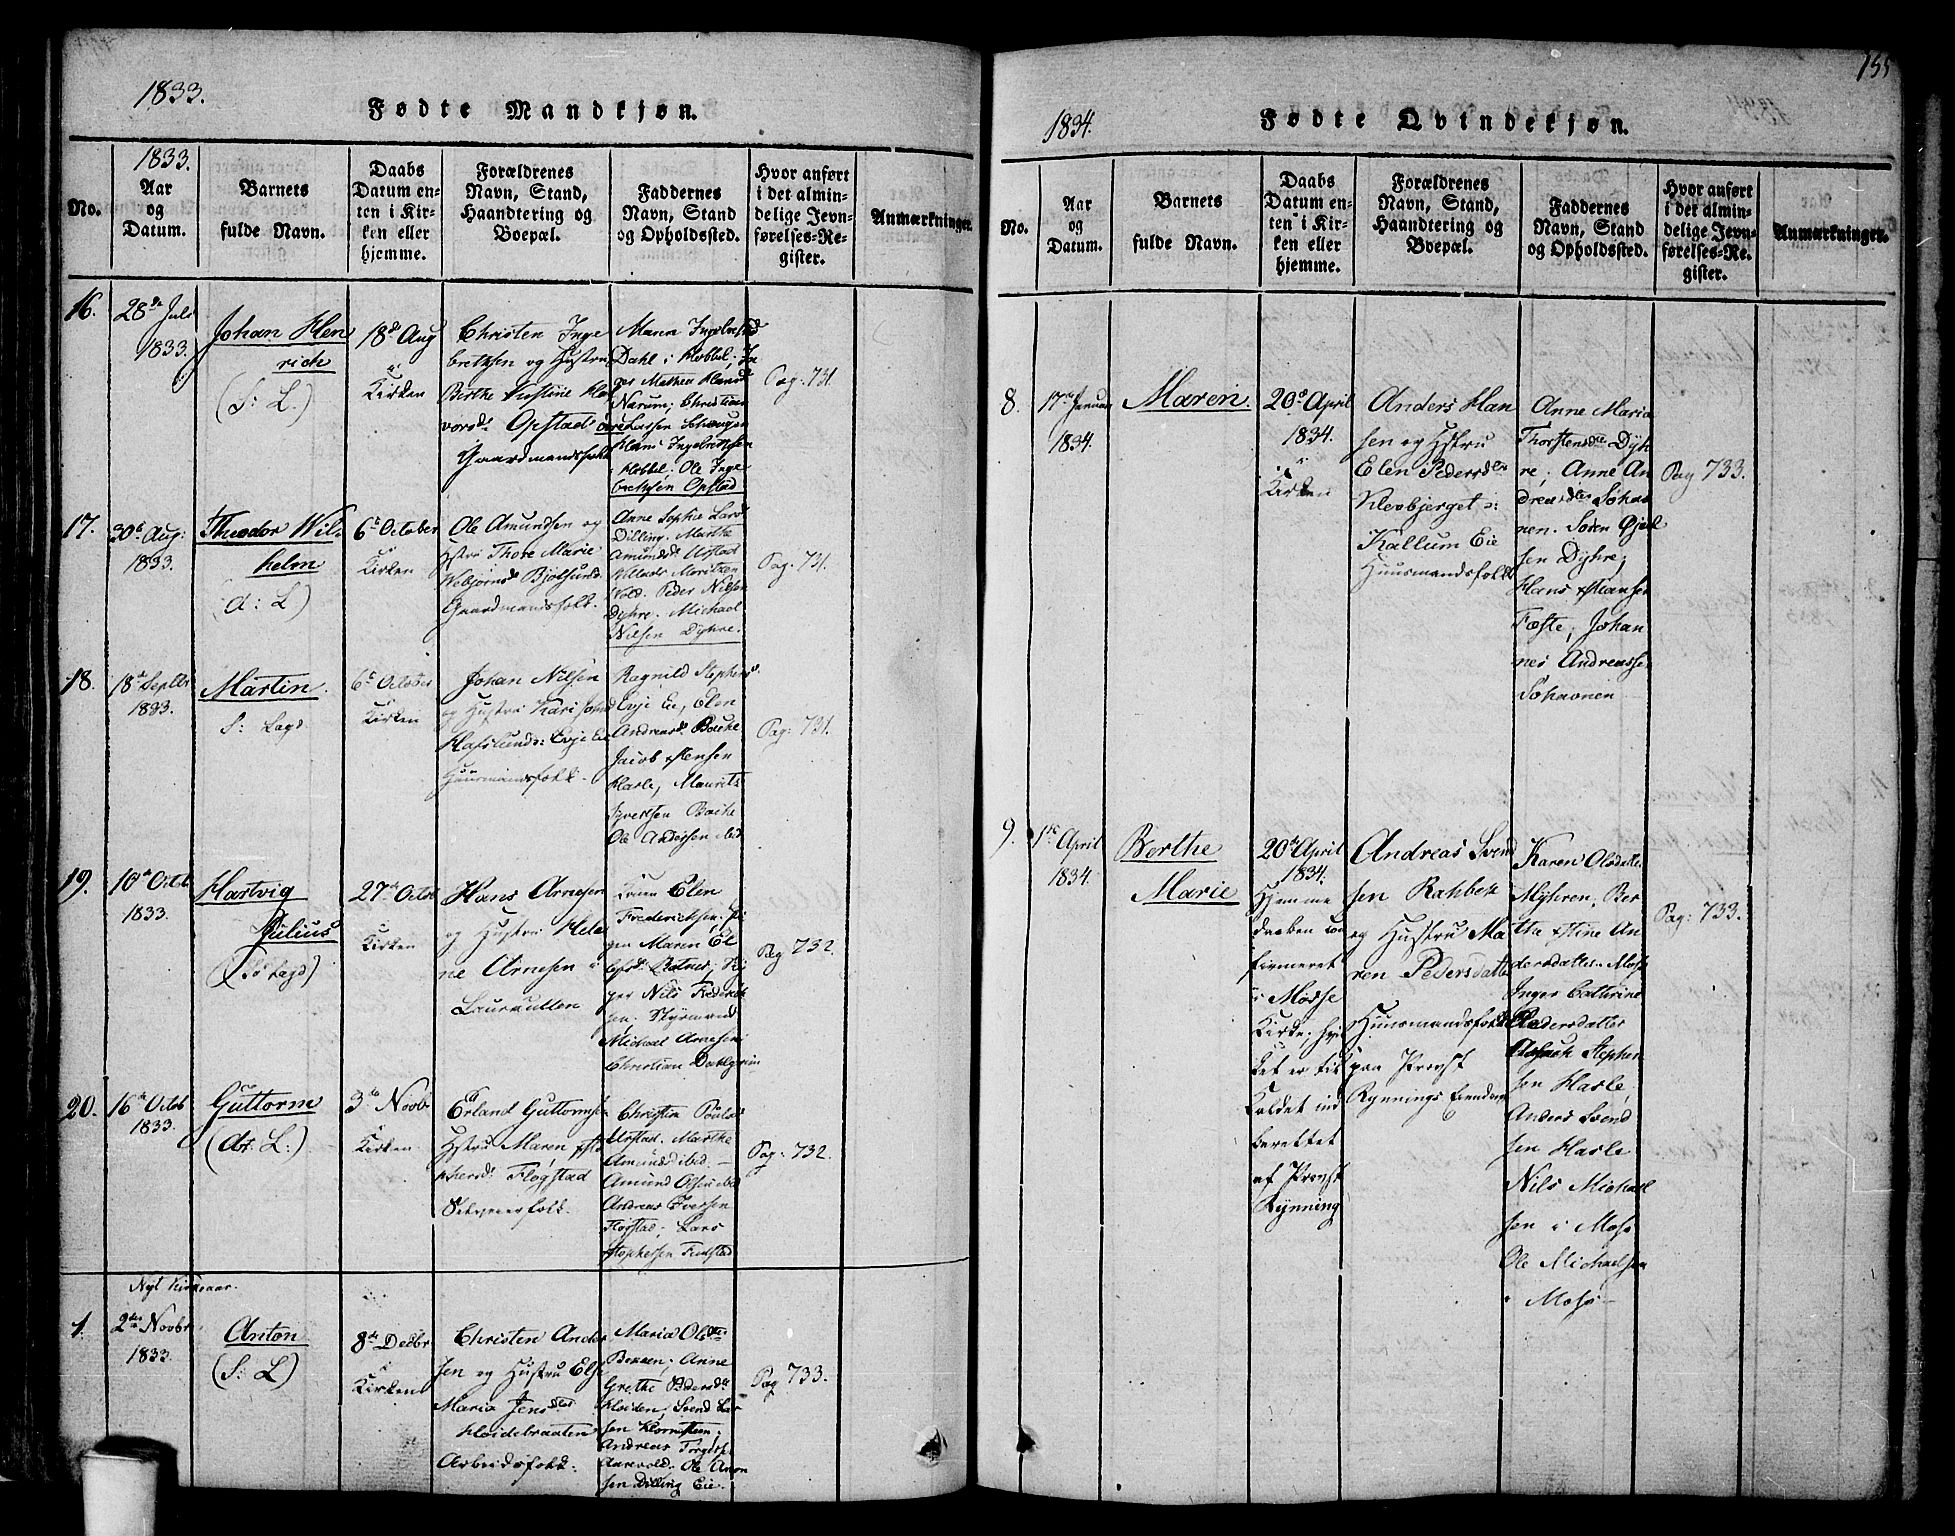 1833.
Fødte Mandkjøn.
1833.
No.
Aar
og
Datum.
Barnets
fulde Navn.
Daabs
Datum en-
ten i Kir-
ken eller
hjemme.
Forældrenes
Navn, Stand,
Haandtering og
Boepæl.
Faddernes
Navn, Stand
og Opholdssted.
Hvor anført
i det almin-
delige Jevn-
førelses-Re-
gister.
Anmærkninger.
16.
28de Juli
1833.
Johan Hen
rich
(S: L.)
18de Aug
i
Kirken
Christen Inge
brethsen og Hustru
Birthe Kirstine Hal
vorsd. Opstad
Gaardmandsfolk
Dahl i Kobbel
Narum; Christian
Hans Ingebretsen
Kobbel. Ole Inge
brethsen Opstad
Pag: 731.
17.
30te Aug:
1833.
Theodor Wil-
helm
(d: L)
6te October
i
Kirken
Ole Amundsen og
Hstru Thore Marie
Webjørnsd. Bjølsund.
Gaardmandsfolk.
Anne Sophie Larsd
Dilling. Marthe
Amundsd. Urstad
Vold. Peder Nilsen
Dyhre. Michael
Nilsen Dyhre.
Pag: 731.
18.
18de Septbr
1833.
Martin.
S: Lagd.
6te October
i
Kirken
Johan Nilsen
og Hustru Kari
Hafslund: Evje Eie
Huusmandsfolk.
Ragnild Stephensd.
Evje Eie, Elen
Andreasd. Bache
Jacob Hansen
Karle, Maurits
Syvertsen Bache
Ole Andersen ibid
Pag: 731.
19.
10de Octob
1833.
Hartvig
Julius
(Sø Lagd)
27de Octob
i
Kirken
Hans Arnesen
og Hustru Hele
ne Arnesen i
Laurkullen
Elen
Fredericksen. Pi
gen Maren El
per Nils Frederik
sen. Styrmand
Michael Arnesen
Christian Dahlgrim
Pag 732.
20.
16de Octob
1833.
Guttorm
(Ar: L:)
3die Novbr
i
Kirken
Erland Guttormse
Hstru Maren Ste
phensd. Flogstad
Selveierfolk.
Christin Poulsd
Urstad. Marthe
Amundsd ibid. —
Amund Olsen ibid
Andreas Iversen
Flogstad. Lars
Stephensen Findstad
Pag: 732.
Nyt Kirkeaar.
1.
2den Novbr
1833.
Anton
(S: L)
8de Decbr
i
Kirken
Christen Ander
sen og Hustru Else
Maria Jensdtr
Høidebraaten
Arbeidsfolk.
Maria Olsdtr
Anne
Grethe Pedersd.
Høiden, Svend Lar
sen
Andreas
Ole Anon
sen Dilling Eie.
Pag 733.
155
1834.
Fødte Qvindekjøn.
No.
Aar
og
Datum.
Barnets
fulde Navn.
Daabs
Datum en-
ten i Kir-
ken eller
hjemme.
Forældrenes
Navn, Stand,
Haandtering og
Boepæl.
Faddernes
Navn, Stand
og Opholdssted.
Hvor anført
i det almin-
delige Jevn-
førelses-Re-
gister.
Anmærkninger.
8.
17de Januar
1834.
Maren.
20de April
1834.
i
Kirken
Anders Han
sen og Hstru
Elen Pedersdtr
Klevbjerget
Kallum Eie
Huusmandsfolk
Anne Maria
Thorstensdtr Dyh
re; Anne An
dreasdtr Sohau
nen. Søren Øjel
sen Dyhre;
Hans Hansen
Fæste; Johan
nes Andreasse
Sohaonen
Pag 733.
9.
1ste April
1834.
Berthe
Marie
20de April
1834.
Hjemme
daaben con
firmeret
i Mosse
Kirke, hvi
ket er til
Caldet ind
berettet
af Provst
Rynning
Andreas Svend
sen Rahbek
og Hustru Ma
ren Pedersdatte
Huusmandsfolk
paa Provst
Rynnings Eiendom
Karen Olsdatter
Myhren, Ber
the Stine An
dersdatter Moss
Inger Cathrine
Pedersdatter
Stephen
sen Karle
Anders Svend
sen Karle
Nils Michael
sen i Moss
Ole Michaelsen
i Moss —
Pag: 733.